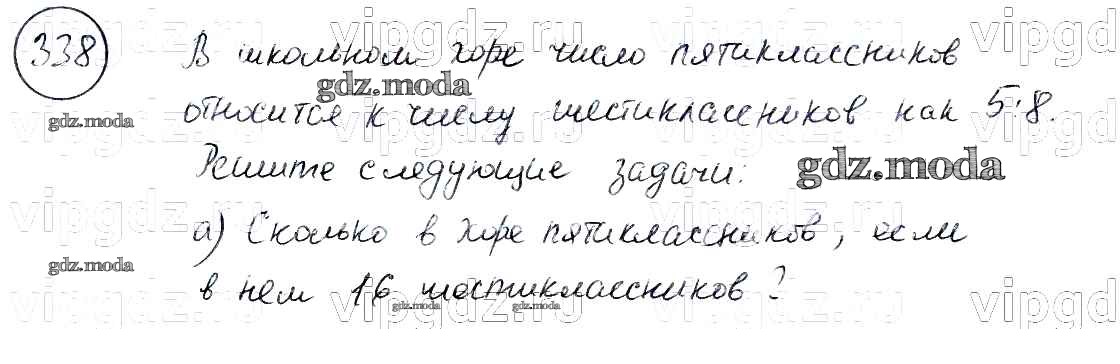 vipgdz.ru vipgdz.ru vipgdz.ru vipgd
338 В школьном хоре число пятиклассников
gdz.moda
gdz.moda
относится к числу шестиклассников как 5:8.
vipgdz.ru vipgdz.ru vipgdz.ru vipgd
Решите следующие задачи:
gdz.moda
vipgdz.ru vipgdz.ru vipgdz.ru vipgd
а) Сколько в хоре пятиклассников, если
gdz.moda
в нем 16 шестиклассников?
gdz.moda
gdz.moda
vipgdz.ru vipgdz.ru vipgdz.ru vipgd